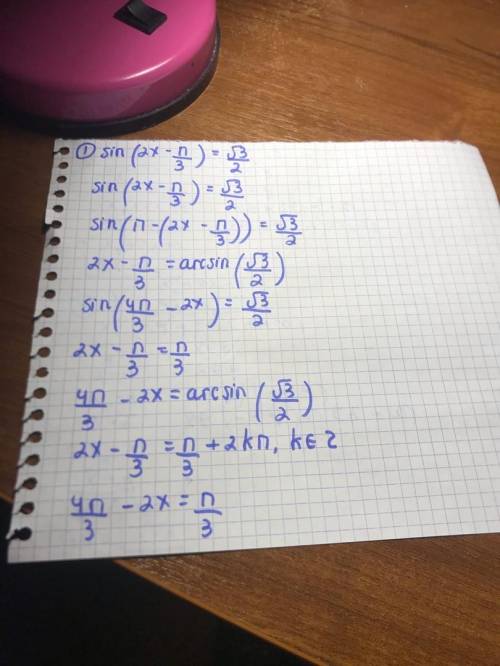 ① sin(2x - π/3) = √3/2
sin(2x - π/3) = √3/2
sin(π - (2x - π/3)) = √3/2
2x - π/3 = arcsin(√3/2)
sin(4π/3 - 2x) = √3/2
2x - π/3 = π/3
4π/3 - 2x = arcsin(√3/2)
2x - π/3 = π/3 + 2kπ, k ∈ Z
4π/3 - 2x = π/3